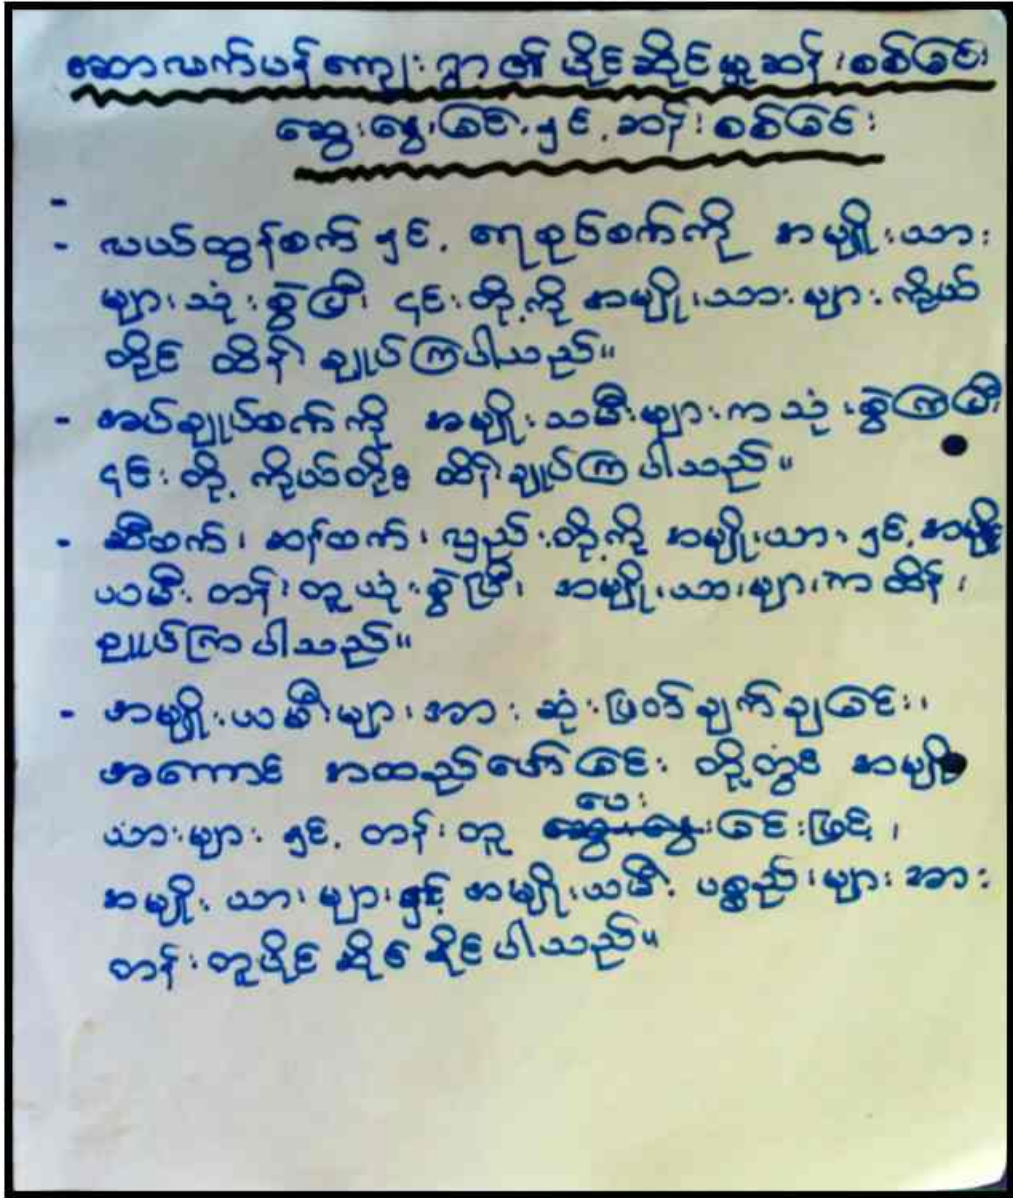 ဆောလက်ပန်ကျေးရွာ၏ ပိုင်ဆိုင်မှုဆန်းစစ်ခြင်း
ဆွေးနွေးခြင်းနှင့် ဆန်းစစ်ခြင်း
-
- လယ်ထွန်စက်နှင့် ရေစုပ်စက်ကို အမျိုးသား
များသုံးစွဲပြီး ၎င်းတို့ကို အမျိုးသားများ ကိုယ်
တိုင် ထိန်းချုပ်ကြပါသည်။
- အပ်ချုပ်စက်ကို အမျိုးသမီးများက သုံးစွဲကြပြီး
၎င်းတို့ ကိုယ်တိုင် ထိန်းချုပ်ကြပါသည်။
- ဆီစက်၊ ဆန်စက်၊ လှည်းတို့ကို အမျိုးသားနှင့် အမျိုး
သမီး တန်းတူသုံးစွဲပြီး အမျိုးသားများက ထိန်း
ချုပ်ကြပါသည်။
- အမျိုးသမီးများအား ဆုံးဖြတ်ချက်ချခြင်း၊
အကောင်အထည်ဖော်ခြင်း တို့တွင် အမျိုး
သားများနှင့် တန်းတူ ပေးခြင်းဖြင့်၊
အမျိုးသားများနှင့် အမျိုးသမီး ပစ္စည်းများအား
တန်းတူပိုင်ဆိုင်နိုင်ပါသည်။